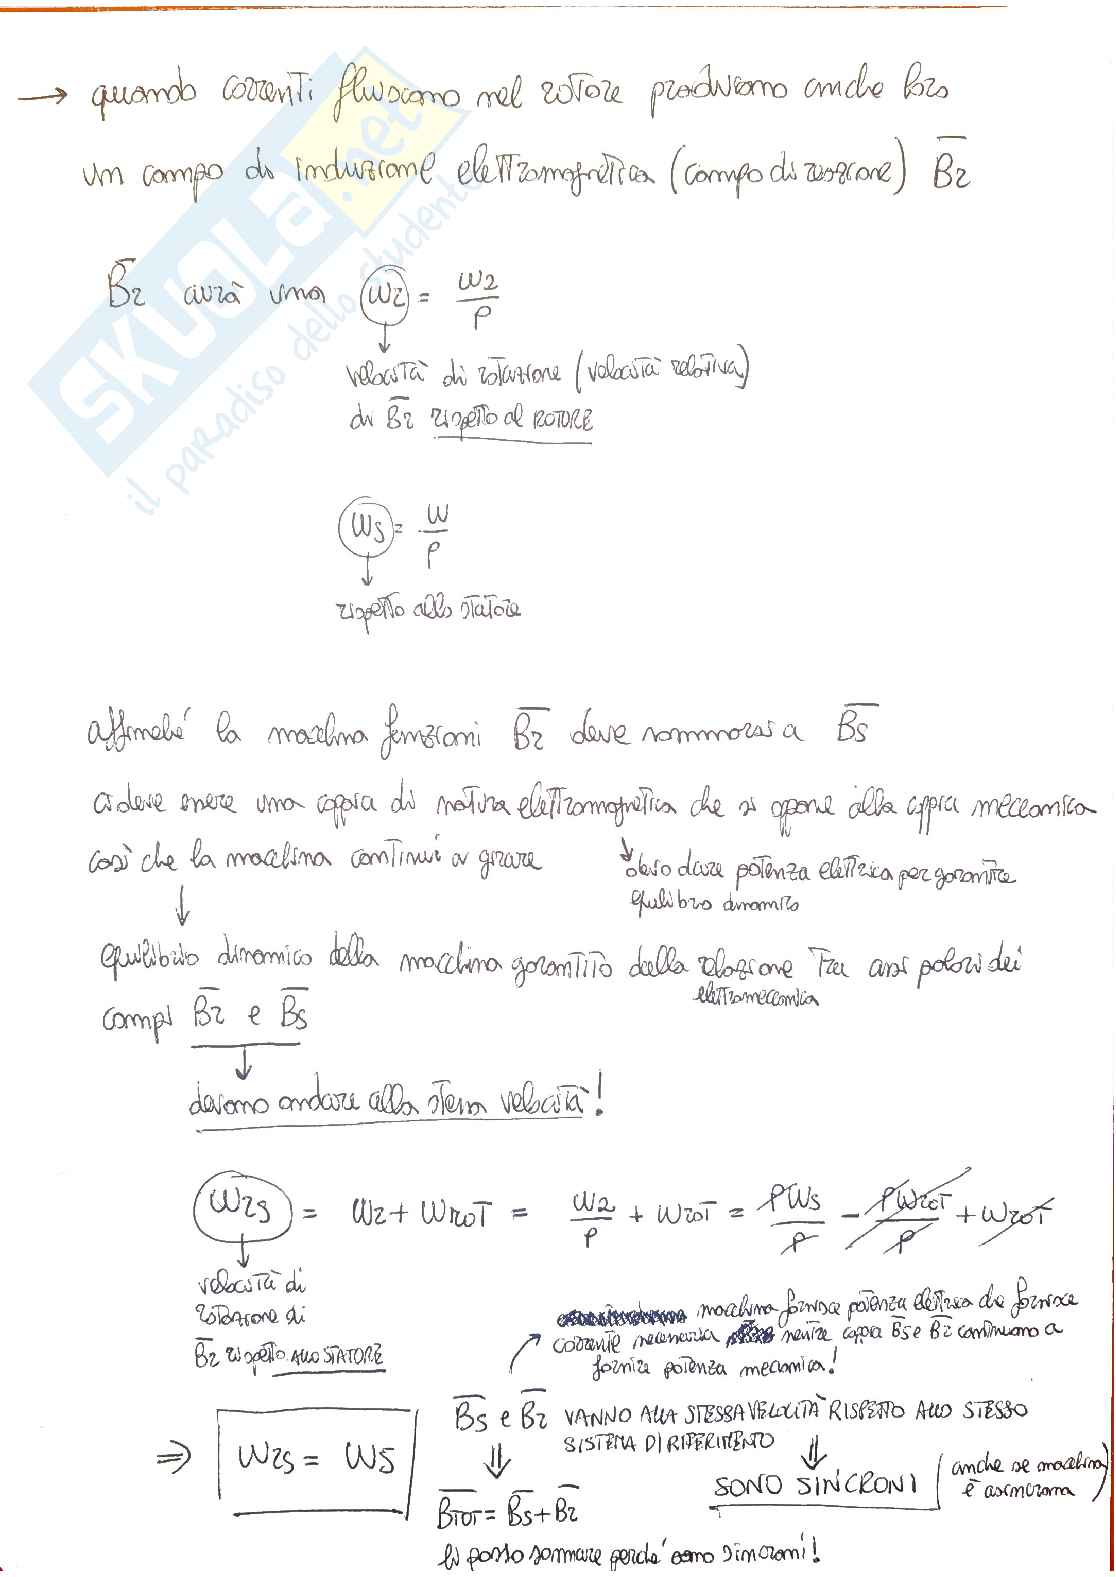 → quando correnti fluiscono nel rotore producono anche loro
un campo di induzione elettromagnetica (campo di reazione) B̅r
B̅r avrà una ωr = ω2/p
velocità di rotazione (velocità relativa)
di B̅r rispetto al ROTORE
ωs = ω/p
rispetto allo statore
affinché la macchina funzioni B̅r deve sommarsi a B̅s
ci deve essere una coppia di natura elettromagnetica che si oppone alla coppia meccanica
così che la macchina continui a girare
devo dare potenza elettrica per garantire
equilibrio dinamico
equilibrio dinamico della macchina garantito dalla relazione tra assi polari dei
elettromeccanica
campi B̅r e B̅s
devono andare alla stessa velocità!
ωrs = ωr + ωrot = ω2/p + ωrot = pωs/p - pωrot/p + ωrot
velocità di
rotazione di
B̅r rispetto ALLO STATORE
macchina fornisce potenza elettrica che fornisce
corrente necessaria mentre coppia B̅s e B̅r continuano a
fornire potenza meccanica!
⇒ ωrs = ωs
B̅s e B̅r VANNO ALLA STESSA VELOCITÀ RISPETTO ALLO STESSO
SISTEMA DI RIFERIMENTO
SONO SINCRONI (anche se macchina
è asincrona)
B̅TOT = B̅s + B̅r
li posso sommare perché sono sincroni!
SKUOLA.net
il paradiso dello studente